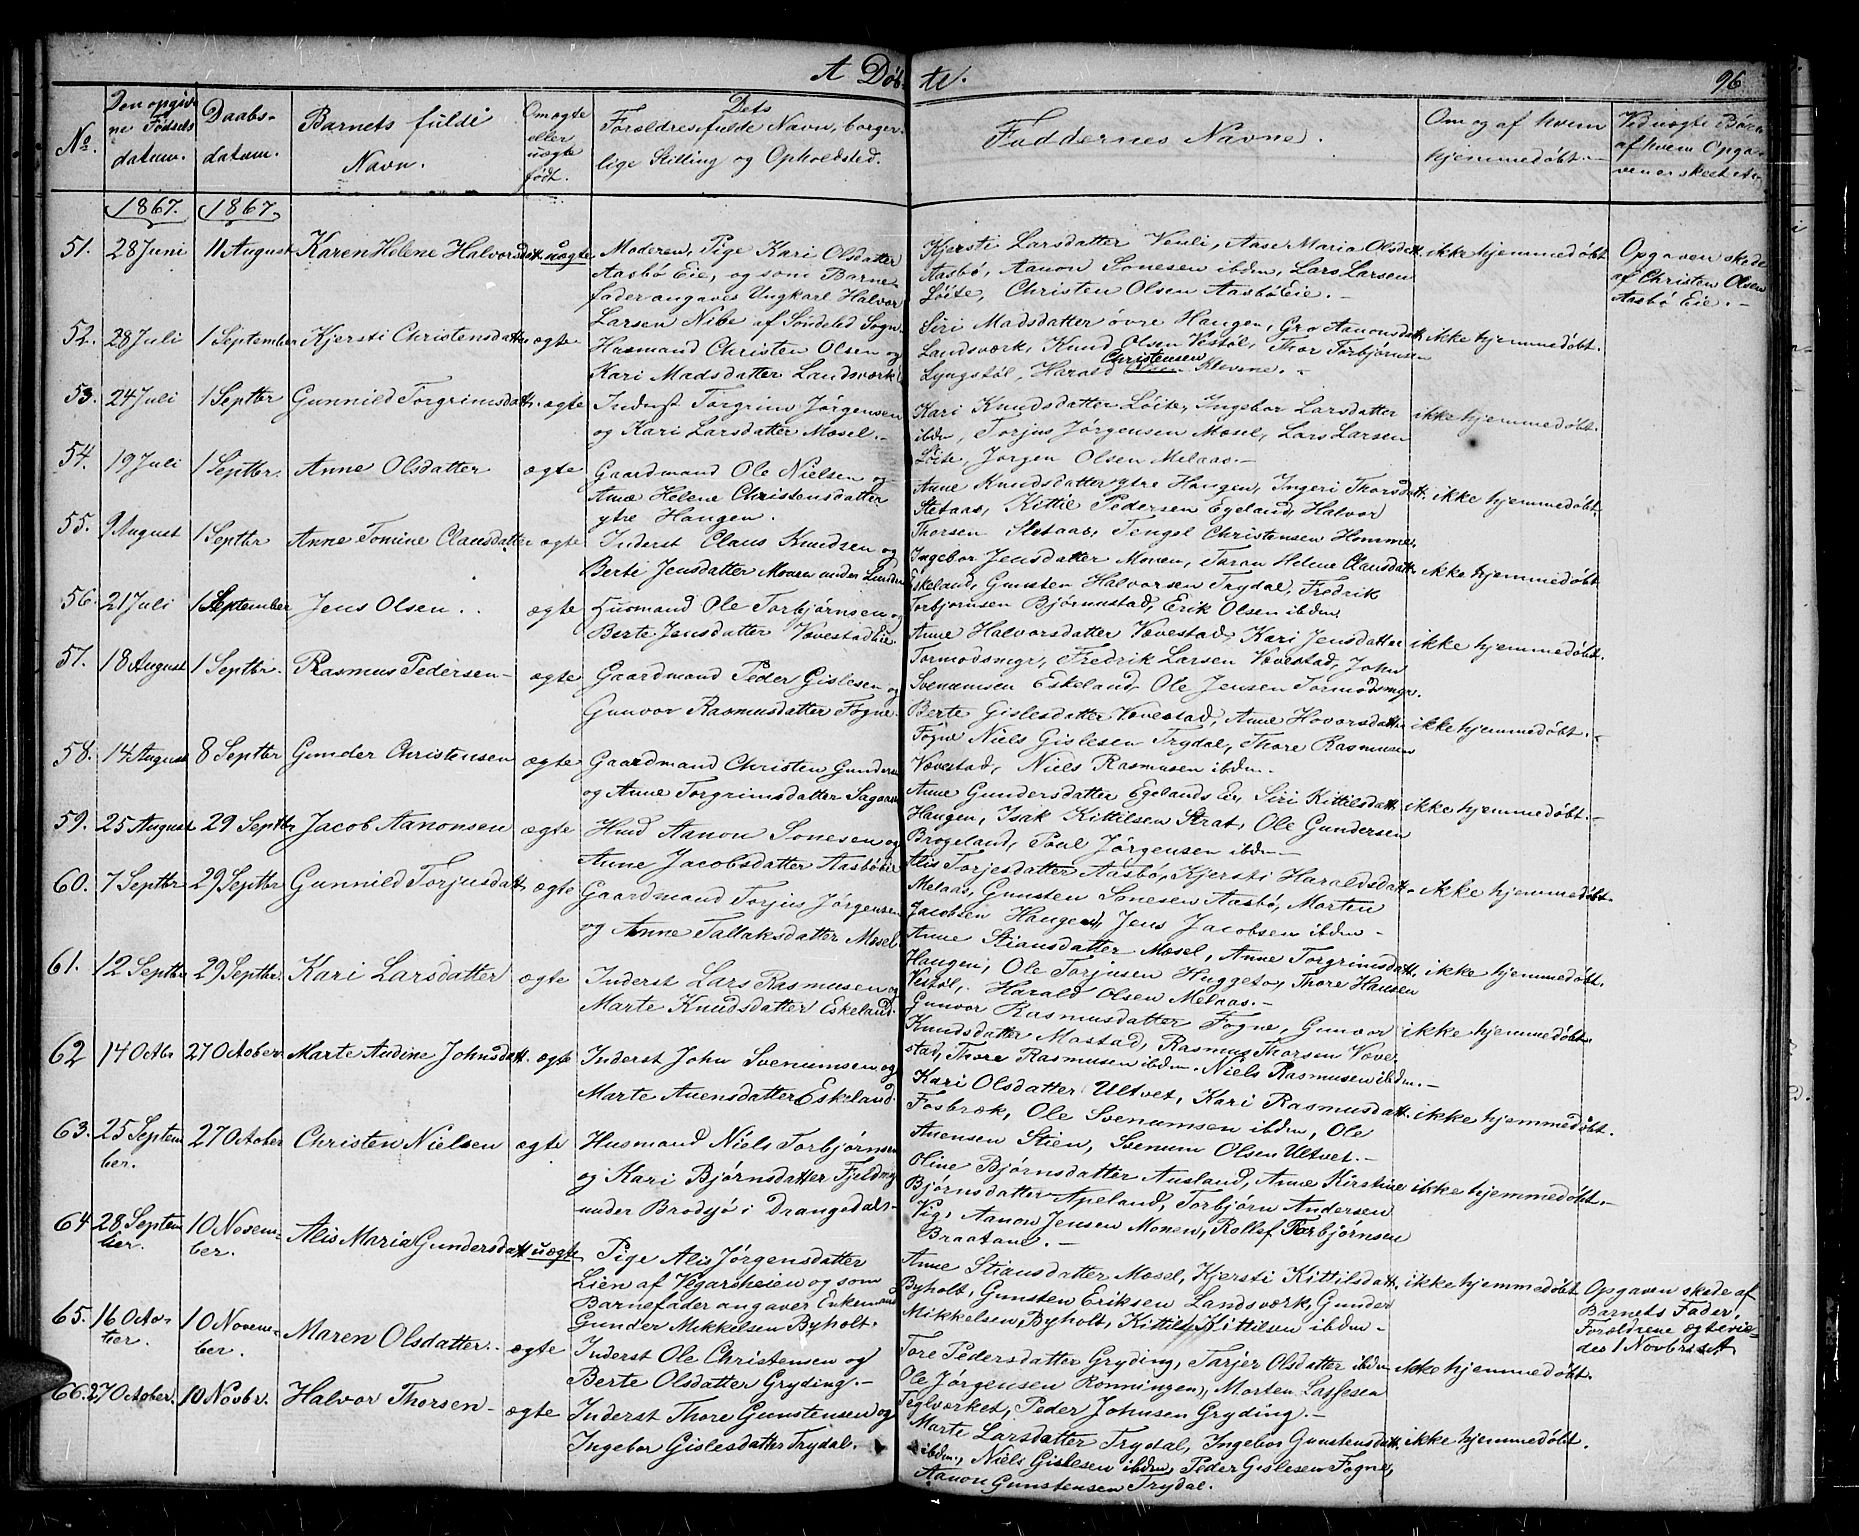 A Døb-
te.
96
No.
Den opgiv-
ne Fødsels
datum.
Daabs-
datum.
Barnets fulde
Navn.
Om ægte
eller
uægte
født.
Dets
Forældres fulde Navn, borger-
lige Stilling og Opholdsted.
Faddernes Navne.
Om og af hvem
hjemmedøbt.
Ved uægte Børn
af hvem Opga-
ven er skeet
1867.
1867.
51.
28 Juni
11 August
Karen Helene Halvorsdtt.
uægte
Moderen, Pige Kari Olsdatter
Aasbø Eie, og som Barne-
fader angaves Ungkarl Halvor
Larsen Nibe af Søndeled Sogn.
Kjersti Larsdatter Veuli, Aase Maria Olsdatt.
Aasbø, Aanon Sonesen ibdm, Lars Larsen
Løite, Christen Olsen Aasbø Eie.-
ikke hjemmedøbt
Opgaven skede
af Christen Olsen
Aasbø Eie.-
52.
28 Juli
1 September
Kjersti Christensdatter
ægte
Husmand Christen Olsen og
Kari Madsdatter Landsværk
Siri Madsdatter øvre Haugen, Gro Aanonsdatt.
Landsværk, Knud Olsen Vestøl, Thor Torbjørnsen
Lyngstøl, Harald Christensen Klevene.-
ikke hjemmedøbt.
53.
24 Juli
1 Septbr
Gunnild Torgrimsdatt.
ægte
Inderst Torgrim Jørgensen
og Kari Larsdatter Mosel.-
Kari Knudsdatter Løite, Ingebor Larsdatter
ibdm, Torjus Jørgensen Mosel, Lars Larsen
Løite, Jørgen Olsen Melaas.-
ikke hjemmedøbt.
54.
19 Juli
1 Septbr.
Anne Olsdatter
ægte
Gaardmand Ole Nielsen og
Anne Helene Christensdatter
ytre Haugen.
Anne Knudsdatter ytre Haugen, Ingeri Thorsdatt.
Sletaas, Kittil Pedersen Egeland, Halvor
Thorsen Sletaas, Tengel Christensen Hommer,
ikke hjemmedøbt.
55.
9 August
1 Septbr
Anne Tomine Clausdatter
ægte
Inderst Claus Knudsen og
Berte Jensdatter Monen under Lunden
Ingebor Jensdatter Monen, Toran Helene Clausdatt.
Eskeland, Gunsten Halvorsen Trydal, Fredrik
Torbjørnsen Bjørnustad, Erik Olsen ibdm
ikke hjemmedøbt.
56.
21 Juli
1 September
Jens Olsen
ægte
Husmand Ole Torbjørnsen og
Berte Jensdatter Vævestad Eie
Anne Halvorsdatter Vævestad, Kari Jensdatter
Tormodsmyr, Fredrik Larsen Vævestad, John
Svenumsen Eskeland, Ole Jensen Tormodsmyr.
ikke hjemmedøbt.
57.
18 August
1 Septbr.
Rasmus Pedersen-
ægte
Gaardmand Peder Gislesen og
Gunvor Rasmusdatter Fogne.
Berte Gislesdatter Vævestad, Anne Hovorsdatter
Fogne Niels Gislesen Trydal, Thore Rasmusen
Vævestad, Niels Rasmusen ibdm.
ikke hjemmedøbt.-
58.
14 August
8 Septbr
Gunder Christensen
ægte
Gaardmand Christen Gundersen
og Anne Torgrimsdatter Sagaas
Anne Gundersdatter Egelands Eie, Siri Kittilsdatt.
Haugen, Isak Kittilsen Strat, Ole Gundersen
Brogeland, Poul Jørgensen ibdm-
ikke hjemmedøbt.-
59.
25 August
29 Septbr
Jacob Aanonsen
ægte
Husd Aanon Sonesen og
Anne Jacobsdatter Aasbø Eie
Alis Torjesdatter Aasbø, Kjersti Haraldsdatt.
Melaas, Gunsten Sonesen Aasbø, Morten
Jacobsen Haugen, Jens Jacobsen ibdm-
ikke hjemmedøbt.
60.
7 Septbr
29 Septbr
Gunnild Torjusdatt
ægte
Gaardmand Torjus Jørgensen
og Anne Tallaksdatter Mosel.
Anne Stiansdatter Mosel, Anne Torgrimsdatt.
Haugen, Ole Torjusen Huggeto, Thore Hansen
Vestøl, Harald Olsen Melaas.-
ikke hjemmedøbt.
61.
12 Septbr
29 Septbr
Kari Larsdatter
ægte
Inderst Lars Rasmusen og
Marte Knudsdatter Eskeland.
Gunvor Rasmusdatter Fogne, Gunvor
Knudsdatter Mostad, Rasmus Thorsen Væve-
stad, Thore Rasmusen ibdm. Niels Rasmusen ibdm.-
ikke hjemmedøbt.
62
14 Octbr
27 October
Marte Andine Johnsdatt.
ægte
Inderst John Svenumsen og
Marte Auensdatter Eskeland
Kari Olsdatter Ultvet, Kari Rasmusdatt.
Fosbræk, Ole Svenumsen ibdm, Ole
Auensen Stien, Svenum Olsen Ultvet.-
ikke hjemmedøbt.
63.
25 Septem
ber.
27 October
Christen Nielsen
ægte
Husmand Niels Torbjørnsen
og Kari Bjørnsdatter Fjeldmyr
under Brødsjø i Drangedal-
Oline Bjørnsdatter Ausland, Anne Kirstine
Bjørnsdatter Apeland, Torbjørn Andersen
Vig, Aanon Jensen Monen, Rollef Torbjørnsen
Braatane.-
ikke hjemmedøbt.-
64
28 Septem
ber.
10 Novem-
ber.
Alis Maria Gundersdatt.
uægte
Pige Alis Jørgensdatter
Lien af Vegarsheien og som
Barnefader angaver Enkemand
Gunder Mikkelsen Byholt.
Anne Stiansdatter Mosel, Kjersti Kittilsdatt.
Byholt, Gunsten Eriksen Landsværk, Gunder
Mikkelsen, Byholt, Kittil Kittilsen ibdm-
ikke hjemmedøbt
Opgaven skede af
Barnets Fader,
Forældrene ægtevie-
des 1 Novbr
65.
16 Octo-
ber
10 Novem-
ber.
Maren Olsdatter.
ægte
Inderst Ole Christensen og
Berte Olsdatter Gryding.-
Tore Pedersdatter Gryding, Tarjer Olsdatter ibdm
Ole Jørgensen Rønningen, Morten Lassesen
Teglværket, Peder Johnsen Gryding.-
ikke hjemmedøbt.
66.
27 October.
10 Novbr.
Halvor Thorsen-
ægte
Inderst Thore Gunstensen og
Ingebor Gislesdatter Trydal.
Marte Larsdatter Trydal, Ingebor Gunstensdatt.
ibdm, Niels Gislesen ibdm, Peder Gislesen Fogne,
Aanon Gunstensen Trydal.
ikke hjemmedøbt.